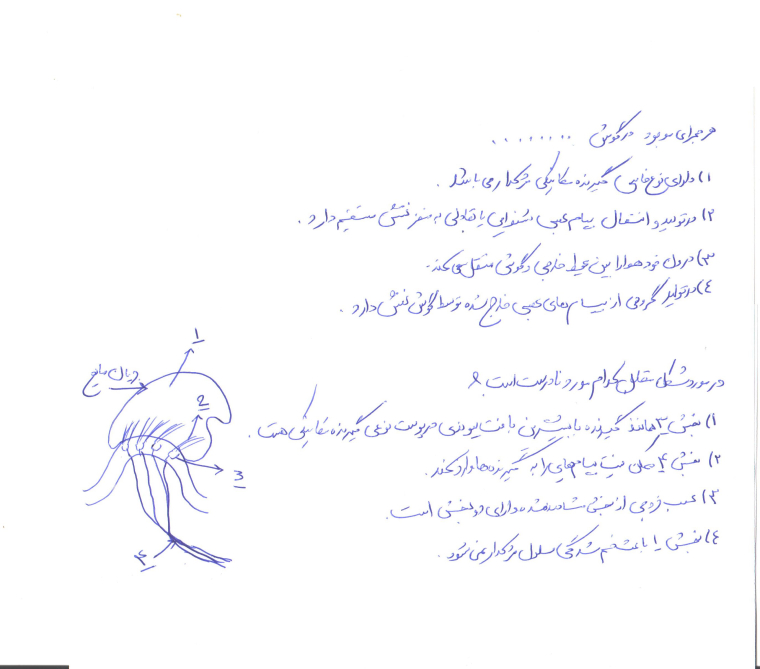 هر مجرای موجود در گوش ........
۱) دارای نوع خاصی گیرنده مکانیکی مژکدار می باشد .
۲) در تولید و انتقال پیام عصبی شنوایی یا تعادلی به مغز نقش مستقیم دارد .
۳) درون خود هوا را بین محیط خارجی و گوش منتقل می کند .
٤) در تولید گروهی از پیام های عصبی خارج شده توسط گوش نقش دارد .
در مورد شکل مقابل کدام مورد نادرست است ؟
۱) بخش 3 همانند گیرنده با بیشترین بافت پیوندی در پوست نوعی گیرنده مکانیکی هست .
۲) بخش ۴ ممکن نیست پیام هایی را به گیرنده ها وارد کند .
۳) عصب خروجی از بخش مشاهده شده دارای دو بخش است .
٤) بخش 1 باعث خم شدگی سلول مژکدار نمی شود .
1
جریان مایع
2
3
۴